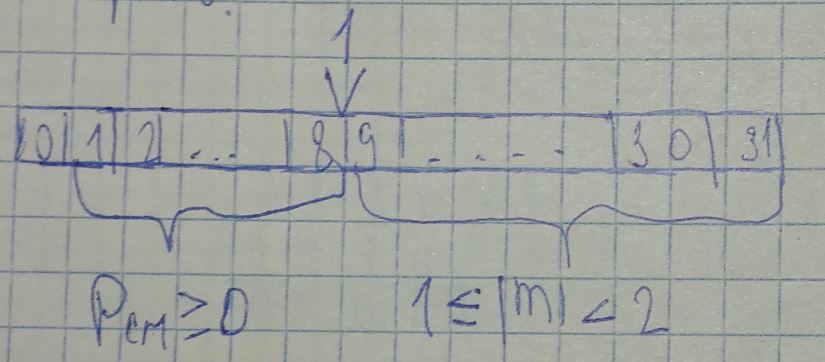 1
0 1 2 ... 8 9 .... 30 31
Pсм ≥ 0 1 ≤ |m| < 2